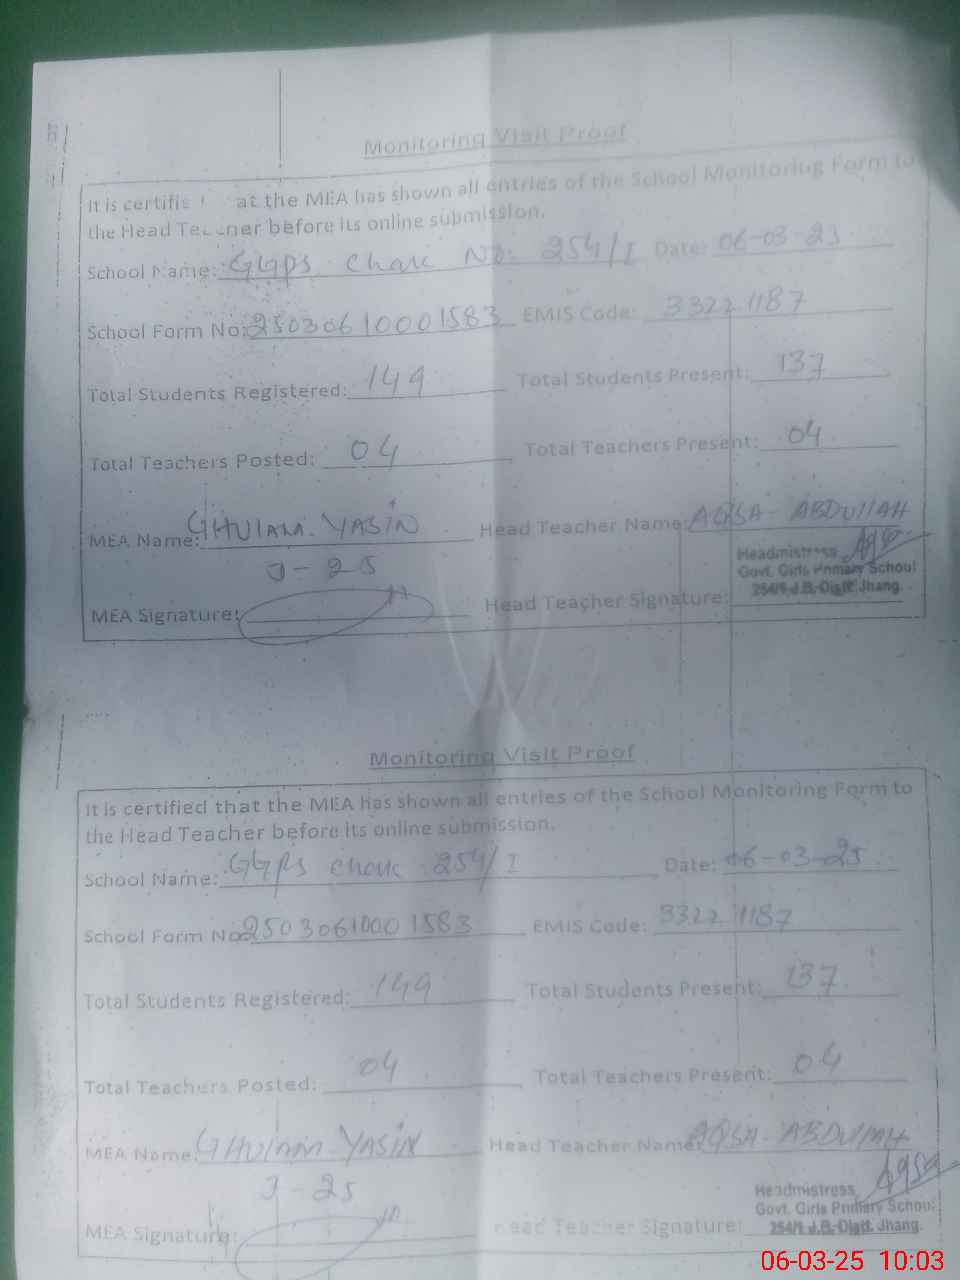 Monitoring Visit Proof
It is certifie at the MEA has shown all entries of the School Monitoring Form to
the Head Teacher before its online submission.
School Name: GGPS Chak No. 254/I Date: 06-03-25
School Form No: 25030610001583 EMIS Code: 33221187
Total Students Registered: 149 Total Students Present: 137
Total Teachers Posted: 04 Total Teachers Present: 04
MEA Name: GHULAM YASIN Head Teacher Name: AQSA ABDULLAH
J-25
Headmistress
Govt. Girls Primary School
254/1 J.B. Distt. Jhang.
MEA Signature: Head Teacher Signature:
Monitoring Visit Proof
It is certified that the MEA has shown all entries of the School Monitoring Form to
the Head Teacher before its online submission.
School Name: GGPS Chak 254/I Date: 06-03-25
School Form No: 25030610001583 EMIS Code: 33221187
Total Students Registered: 149 Total Students Present: 137
Total Teachers Posted: 04 Total Teachers Present: 04
MEA Name: GHULAM YASIN Head Teacher Name: AQSA ABDULLAH
J-25 Aqsa
Headmistress
Govt. Girls Primary School
254/1 J.B. Distt. Jhang.
MEA Signature: Head Teacher Signature:
06-03-25 10:03